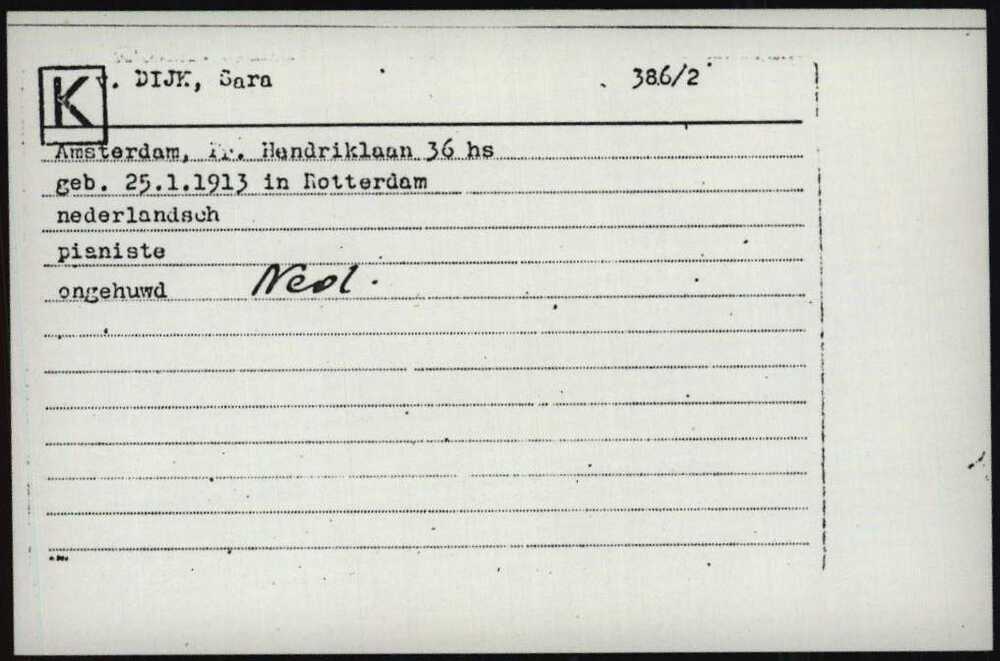 K v. DIJK, Sara 386/2
Amsterdam, Pr. Hendriklaan 36 hs
geb. 25.1.1913 in Rotterdam
nederlandsch
pianiste
ongehuwd Ned.